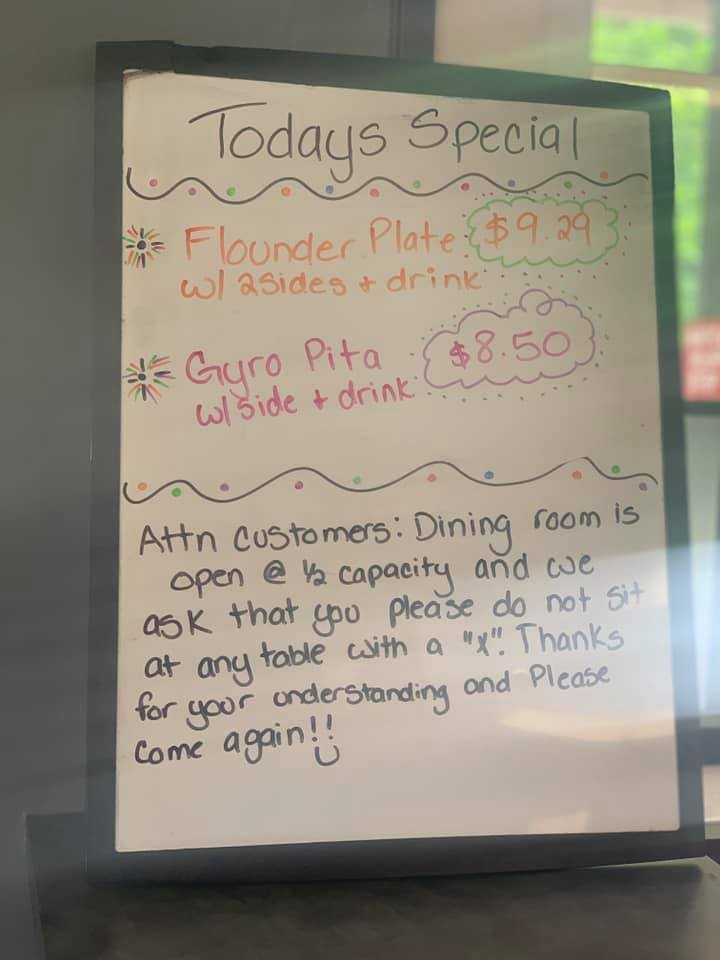 Todays Special
Flounder Plate $9.29
w/ 2sides + drink
Gyro Pita $8.50
w/side + drink
Attn Customers: Dining room is
open @ ½ capacity and we
ask that you please do not sit
at any table with a "X". Thanks
for your understanding and Please
Come again!!